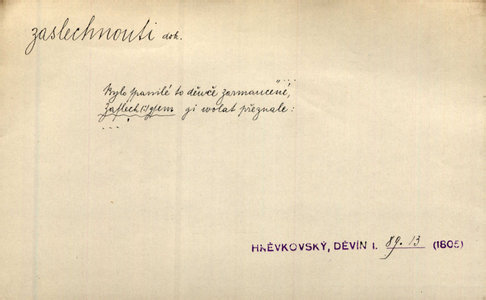 zaslechnouti dok.
....
Bylo spanilé to děvče zarmaucené,
Zaslech sem gi wolat přeznale:
....
HNĚVKOVSKÝ, DĚVÍN I. 89.13 (1805)